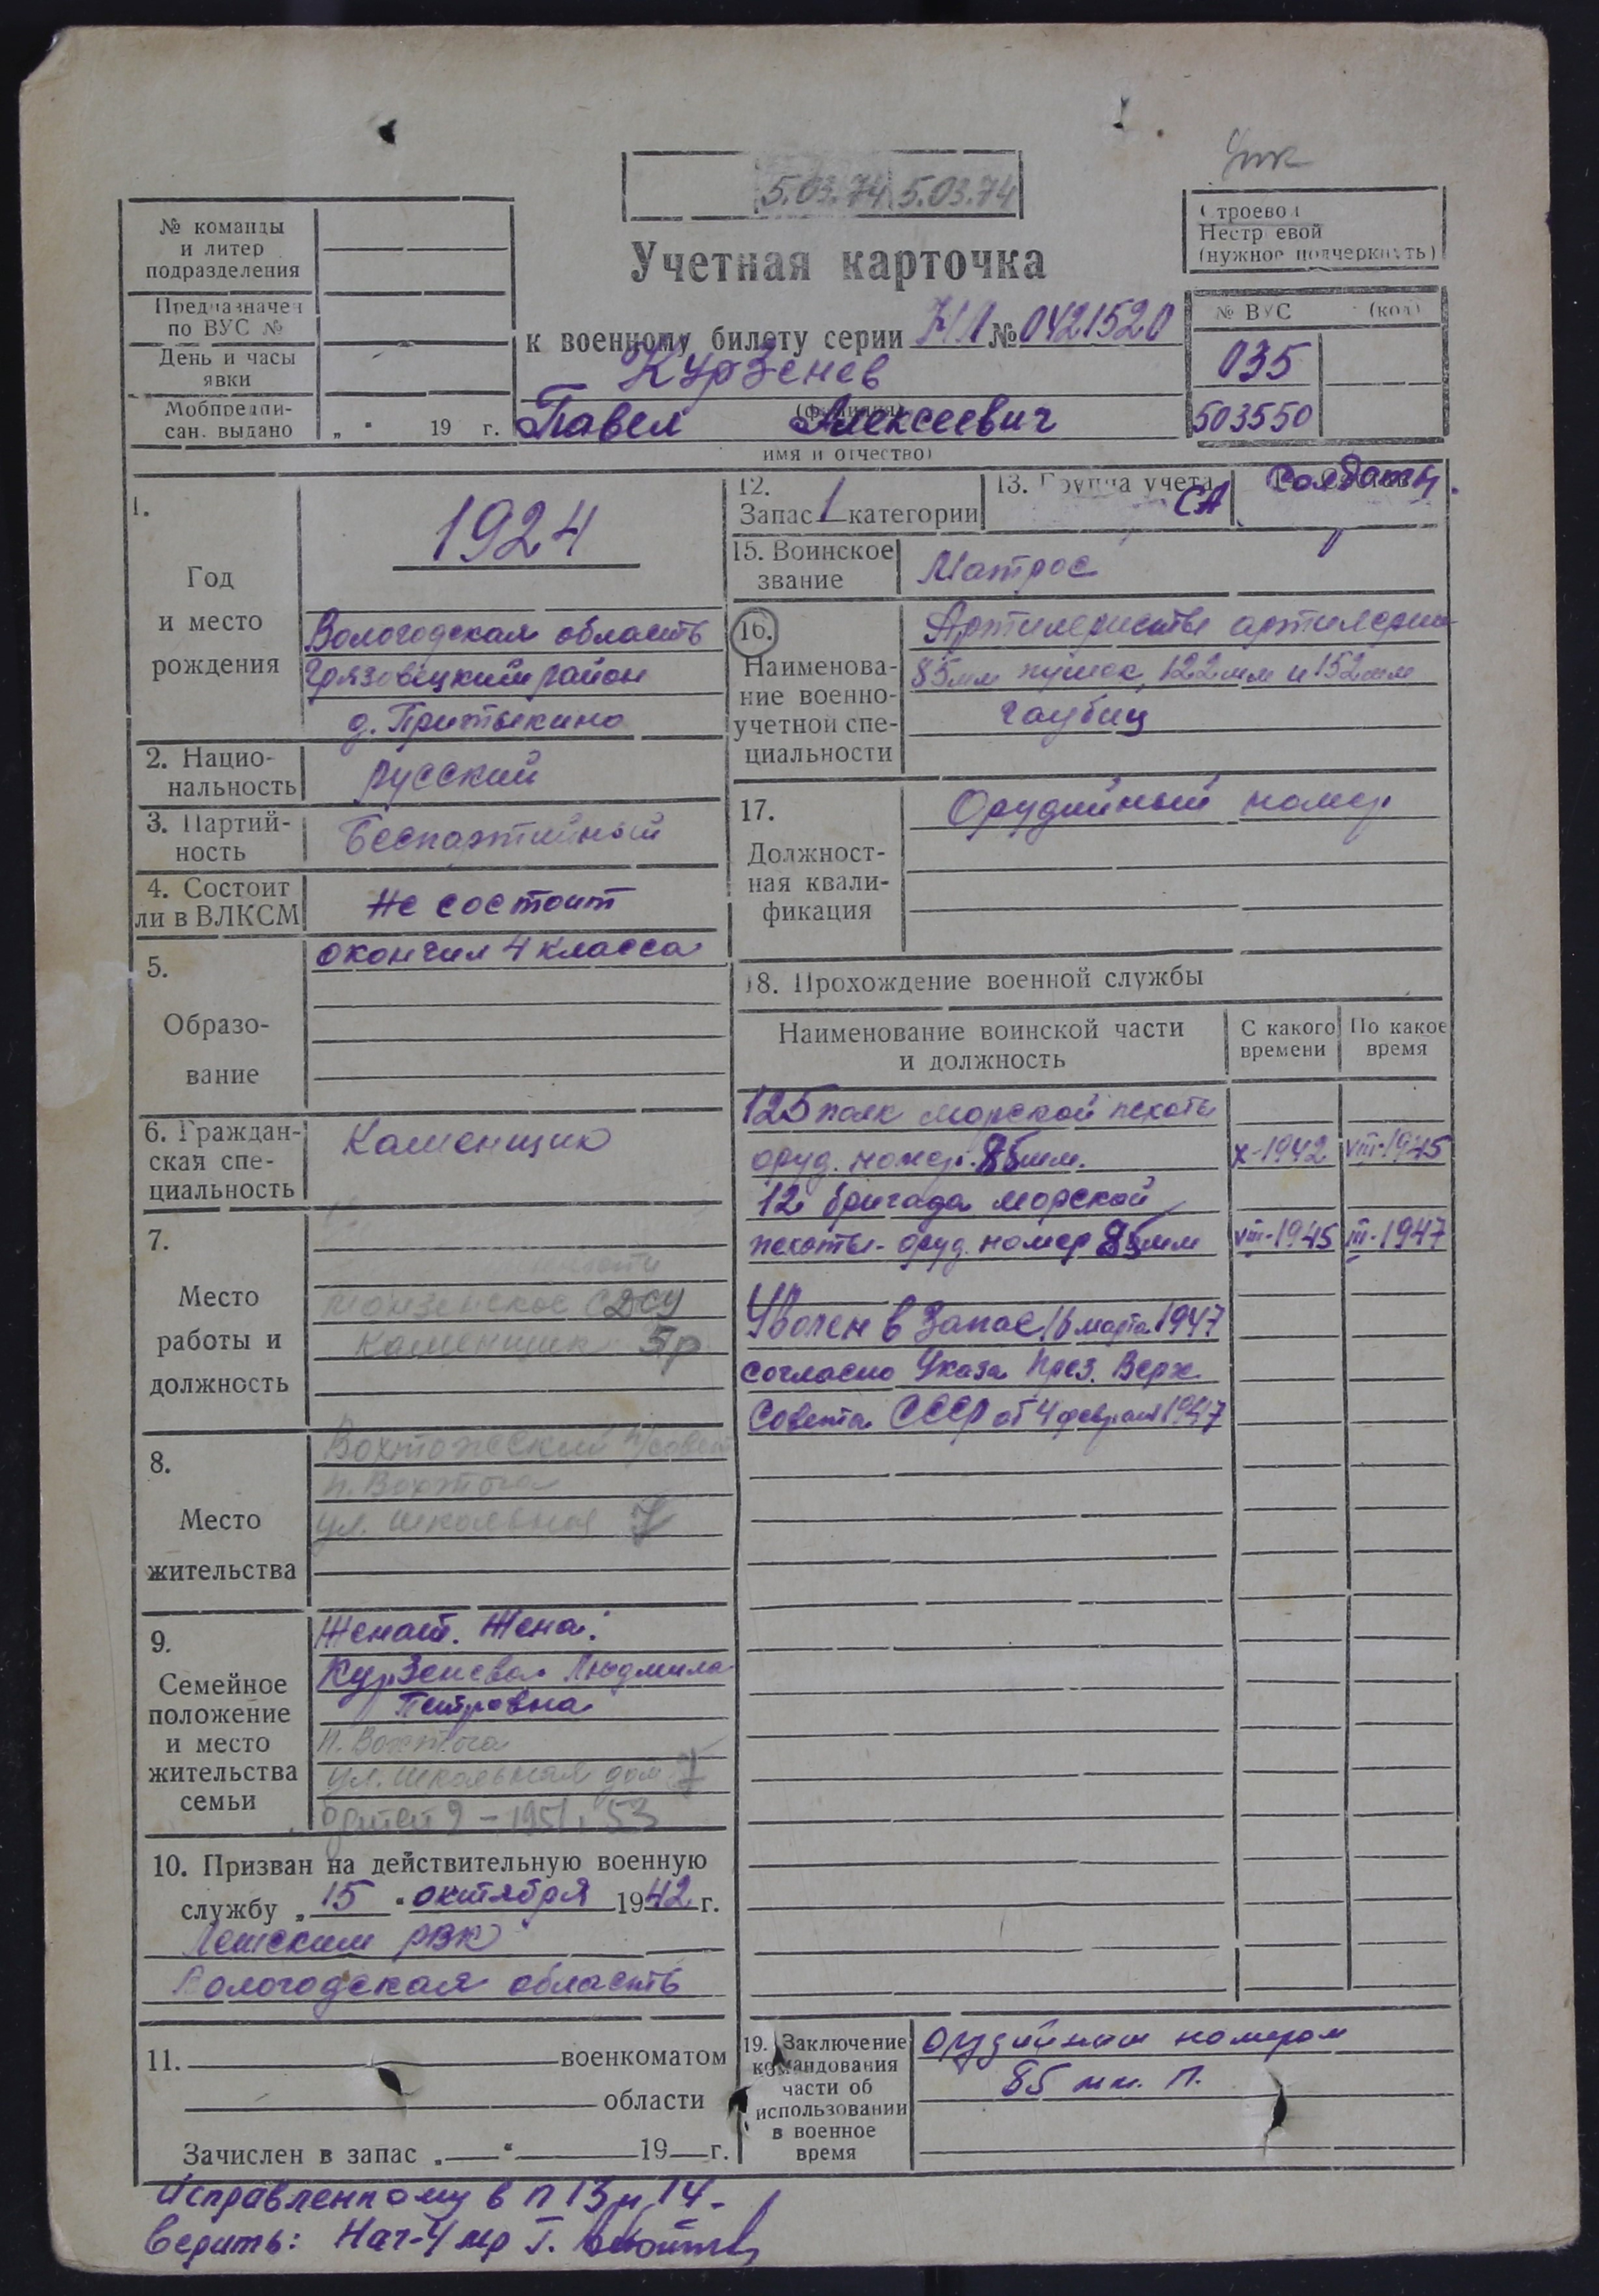 5.03.74 5.03.74
Строевой
Нестроевой
(нужное подчеркнуть)
№ команды
и литер
подразделения
Предназначен
по ВУС №
День и часы
явки
Мобпредпи-
сан. выдано „ " 19 г.
Учетная карточка
к военному билету серии № 0421520
Курзенев
(фамилия)
Павел Алексеевич
имя и отчество)
№ ВУС (код)
035
503550
1.
Год
и место
рождения
1924
Вологодская область
Грязовецкий район
д. Притыкино
2. Нацио-
нальность
русский
3. Партий-
ность
Беспартийный
4. Состоит
ли в ВЛКСМ
Не состоит
5.
Образо-
вание
окончил 4 класса
6. Граждан-
ская спе-
циальность
Каменщик
7.
Место
работы и
должность
Монзенское СДСУ
Каменщик 5р
8.
Место
жительства
Вохтожский п/совет
п. Вохтога
ул. Школьная 7
9.
Семейное
положение
и место
жительства
семьи
Женат. Жена:
Курзенева Людмила
Петровна
п. Вохтога
ул. Школьная дом 7
детей 2 - 1951, 53
10. Призван на действительную военную
службу „15" октября 1942 г.
РВК
Вологодская область
11. военкоматом
области
Зачислен в запас „ " 19 г.
12.
Запас 1 категории
13. Группа учета
СА
Солдаты
15. Воинское
звание
Матрос
16.
Наименова-
ние военно-
учетной спе-
циальности
85мм пушек, 122мм и 152мм
гаубиц
17.
Должност-
ная квали-
фикация
Орудийный номер
18. Прохождение военной службы
Наименование воинской части
и должность
С какого
времени
По какое
время
125 полк морской пехоты
оруд. номер. 85мм. X-1942 VIII-1945
12 бригада морской
пехоты - оруд. номер 85мм VIII-1945 III-1947
Уволен в запас 16 марта 1947
согласно Указа През. Верх.
Совета СССР от 4 февраля 1947
19. Заключение
командования
части об
использовании
в военное
время
орудийным номером
85 мм. П.
Исправленному в п 13 и 14 -
верить: Нач-